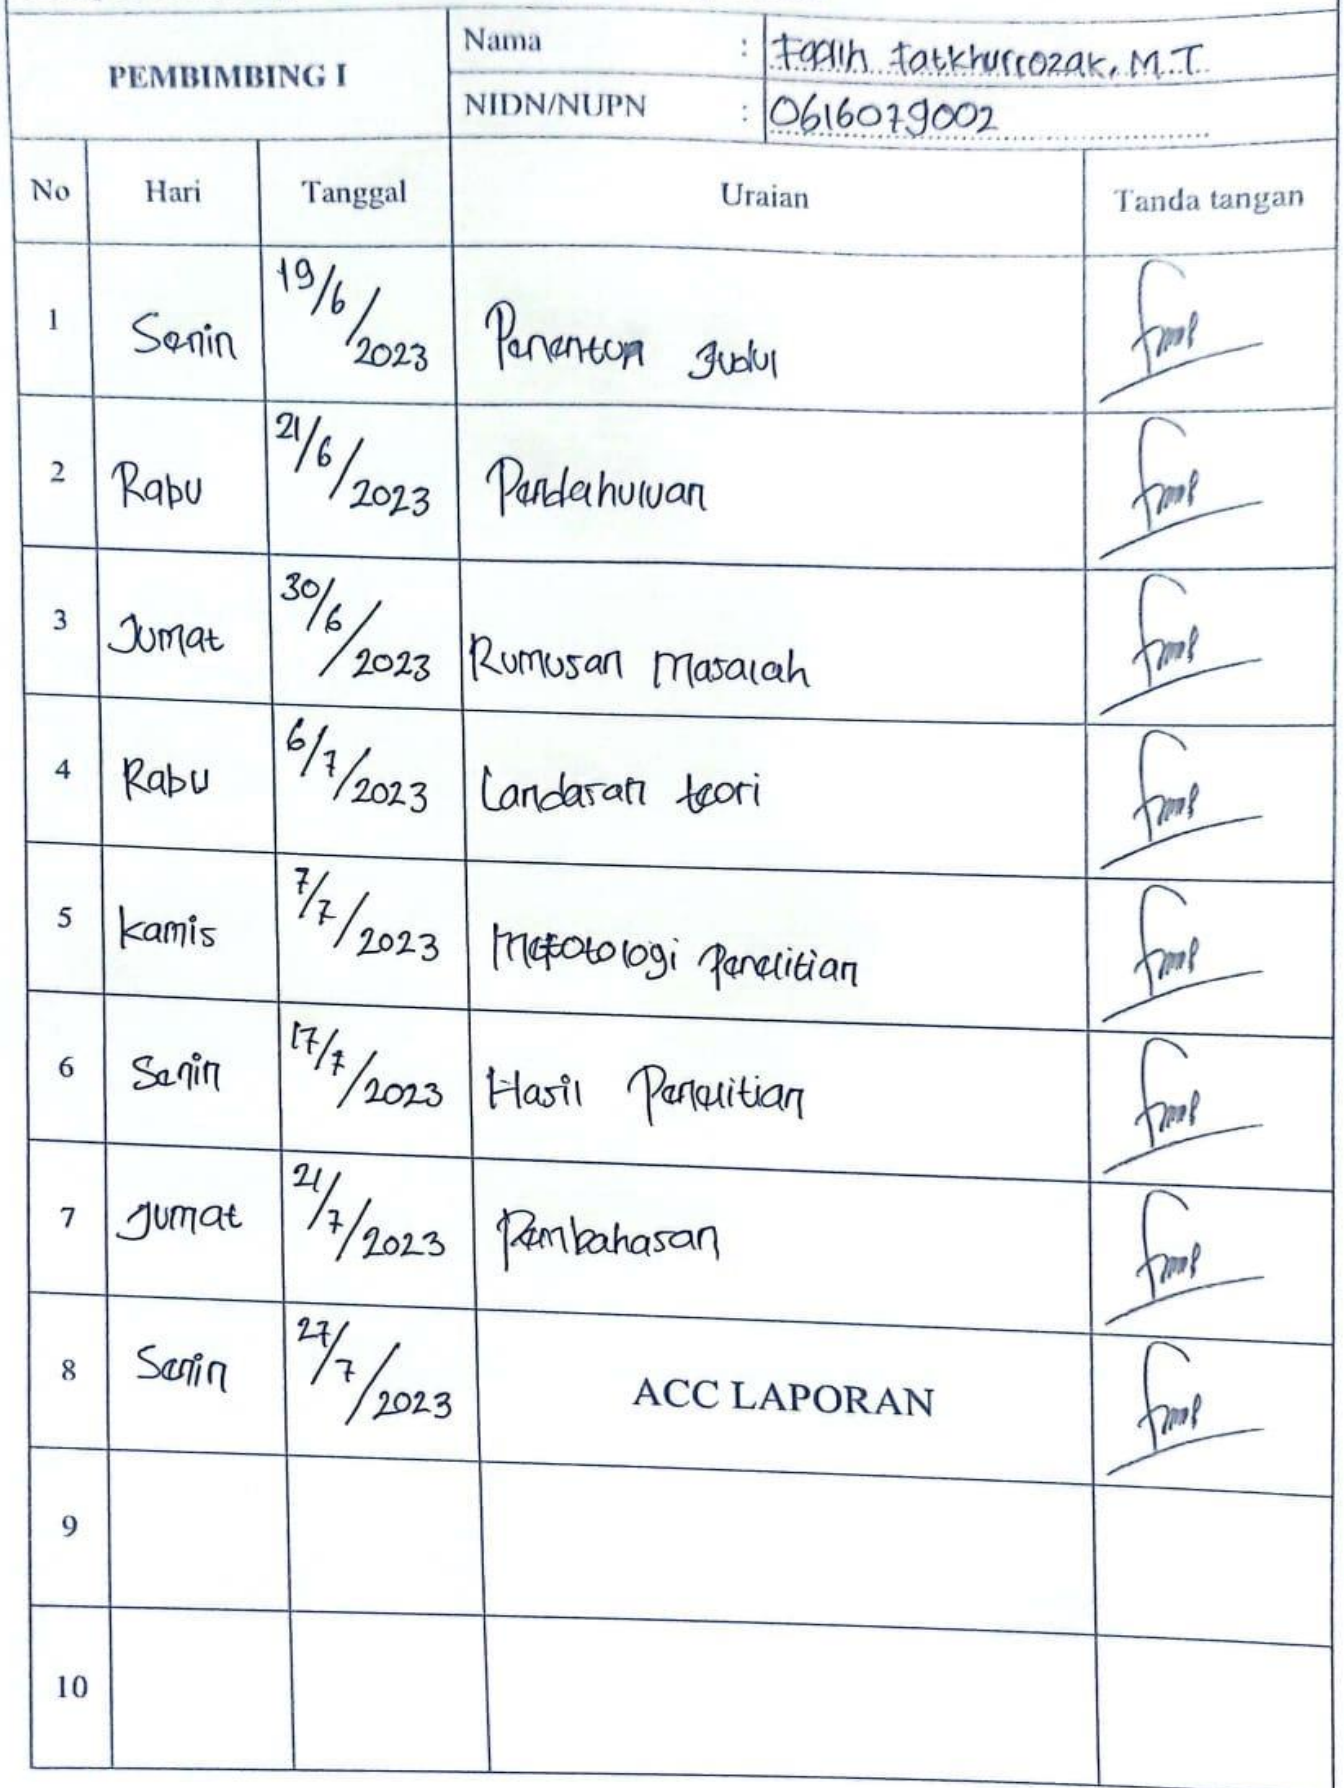 PEMBIMBING I
Nama : Faqih Fatkhurrozak, M.T
NIDN/NUPN : 0616079002
No Hari Tanggal Uraian Tanda tangan
1 Senin 19/6/2023 Penentun Judul
2 Rabu 21/6/2023 Pendahuluan
3 Jumat 30/6/2023 Rumusan Masalah
4 Rabu 6/7/2023 Landasan teori
5 Kamis 7/7/2023 Penelitian
6 Senin 17/7/2023 Hasil Penelitian
7 Jumat 21/7/2023 Pembahasan
8 Senin 27/7/2023 ACC LAPORAN
9
10